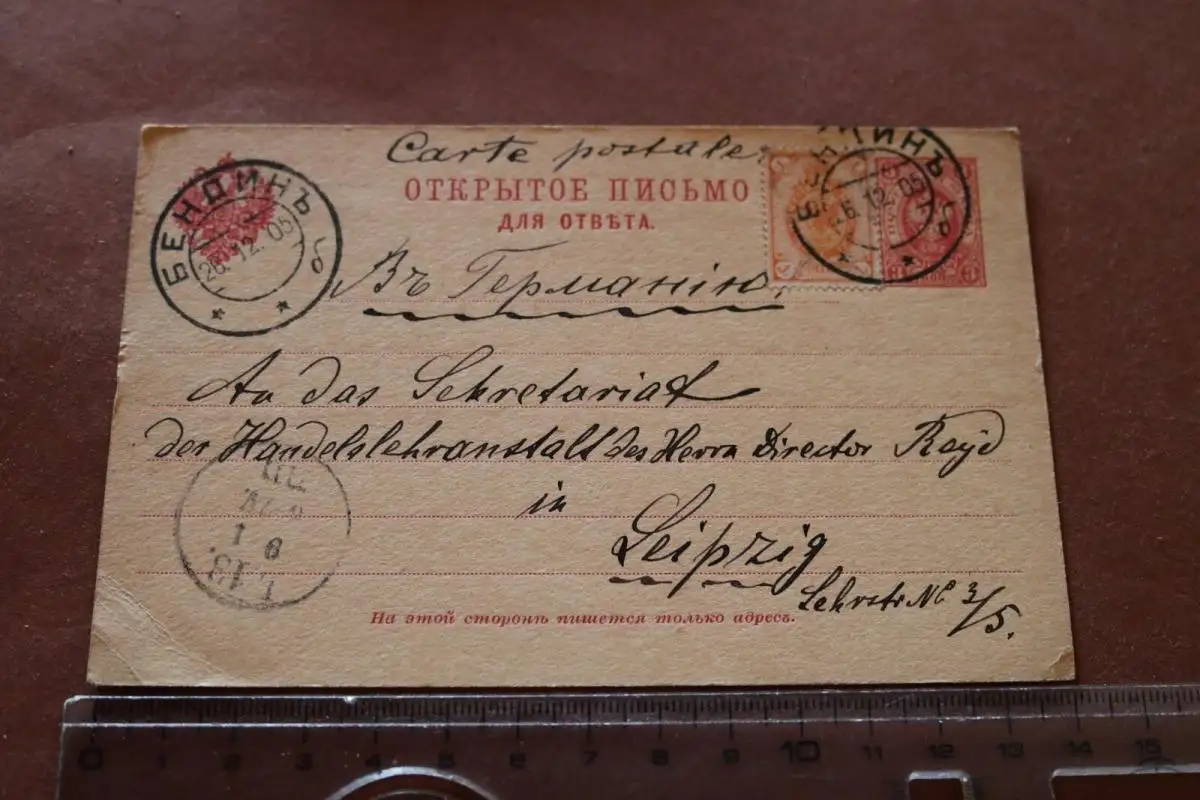 Carte postale.
ОТКРЫТОЕ ПИСЬМО
ДЛЯ ОТВѢТА.
БЕНДИНЪ
26.12.05
б
БЕНДИНЪ
6.12.05
б
1
3
3
Въ Германію.
An das Sekretariat
der Handelslehranstalt des Herrn Director
in
Leipzig
Lehrstr № 3/5.
На этой сторонѣ пишется только адресъ.
0 1 2 3 4 5 6 7 8 9 10 11 12 13 14 15